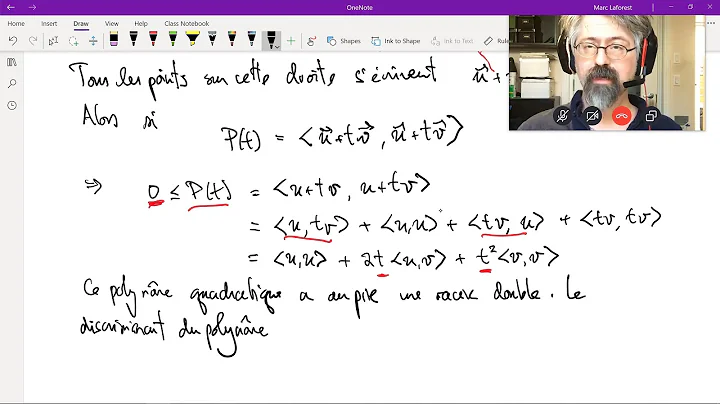 OneNote
Marc Laforest
Home Insert Draw View Class Notebook
Shapes Ink to Shape Ink to Text Ruler
Tous les points sur cette droite s'écrivent u⃗+
Alors si
P(t) = ⟨u⃗+tv⃗, u⃗+tv⃗⟩
⇒ 0 ≤ P(t) = ⟨u+tv, u+tv⟩
= ⟨u,tv⟩ + ⟨u,u⟩ + ⟨tv, u⟩ + ⟨tv, tv⟩
= ⟨u,u⟩ + 2t ⟨u,v⟩ + t²⟨v,v⟩
Ce polynôme quadratique a au pire une racine double. Le
discriminant du polynôme